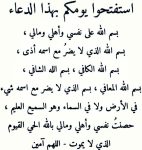 استفتحوا يومكم بهذا الدعاء
بسم الله على نفسي وأهلي ومالي ،
بسم الله الذي لا يضر مع اسمه أذى ،
بسم الله الكافي ، بسم الله الشافي ،
بسم الله المعافي ، بسم الله الذي لا يضر مع اسمه شيء
في الأرض ولا في السماء وهو السميع العليم ،
حصنتُ نفسي وأهلي ومالي بالله الحي القيوم
الذي لا يموت - اللهم آمين